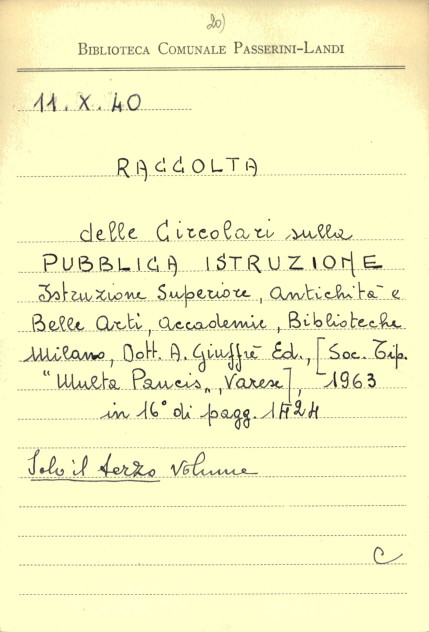 20)
BIBLIOTECA COMUNALE PASSERINI-LANDI
11. X. 40
RACCOLTA
delle Circolari sulla
PUBBLICA ISTRUZIONE
Istruzione Superiore, Antichità e
Belle Arti, Accademie, Biblioteche
Milano, Dott. A. Giuffrè Ed., [Soc. Tip.
"Multa Paucis", Varese], 1963
in 16° di pagg.
Solo il terzo volume
C